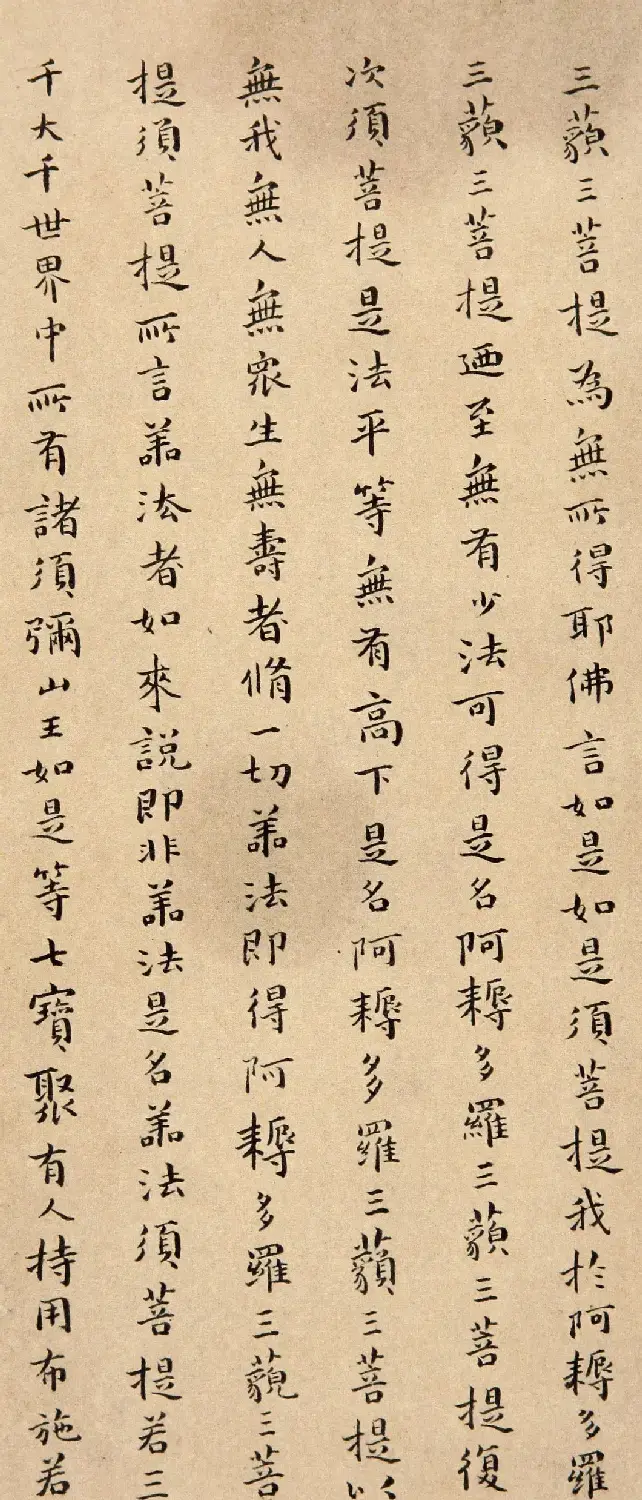 三藐三菩提為無所得耶佛言如是如是須菩提我於阿耨多羅
三藐三菩提廼至無有少法可得是名阿耨多羅三藐三菩提復
次須菩提是法平等無有高下是名阿耨多羅三藐三菩提以
無我無人無衆生無壽者脩一切善法即得阿耨多羅三藐三菩
提須菩提所言善法者如來說即非善法是名善法須菩提若三
千大千世界中所有諸須彌山王如是等七寶聚有人持用布施若